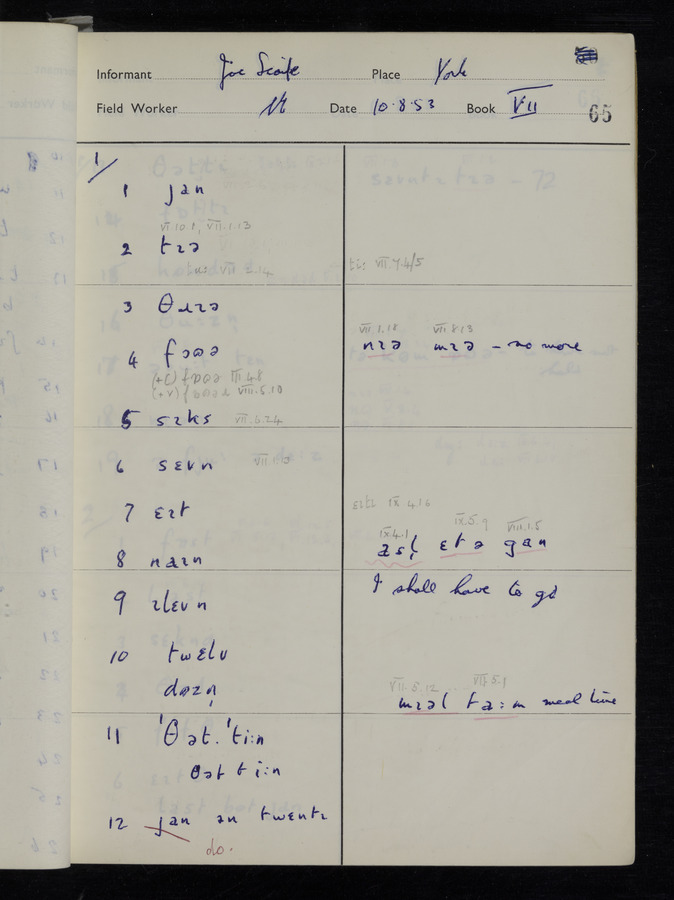 Informant Joe Scaife Place York
Field Worker Date 10·8·53 Book VII 65
1/
1 jan
VI.10.1, VII.1.13
2 tɪə
VII.2.14
VII.7.4/5
3 θɹɪə
VII.1.18 VII.8.13
4 fɔəə nɪə mɪə – no more
VIII.5.10
5 sɪks VII.5.24
6 sɛvn
7 ɛɪt
IX.4.16
IX.4.1 IX.5.9 VIII.1.5
8 naɪn əsl̩ ɛtə gan
I shall have to go
9 ɪlɛvn
10 twɛlv
dɒzn̩
VII.5.12 VII.5.1
mɪəl ta:m meal time
11 ˈθət.ˈti:n
θətti:n
12 jan ən twɛntɪ
do.